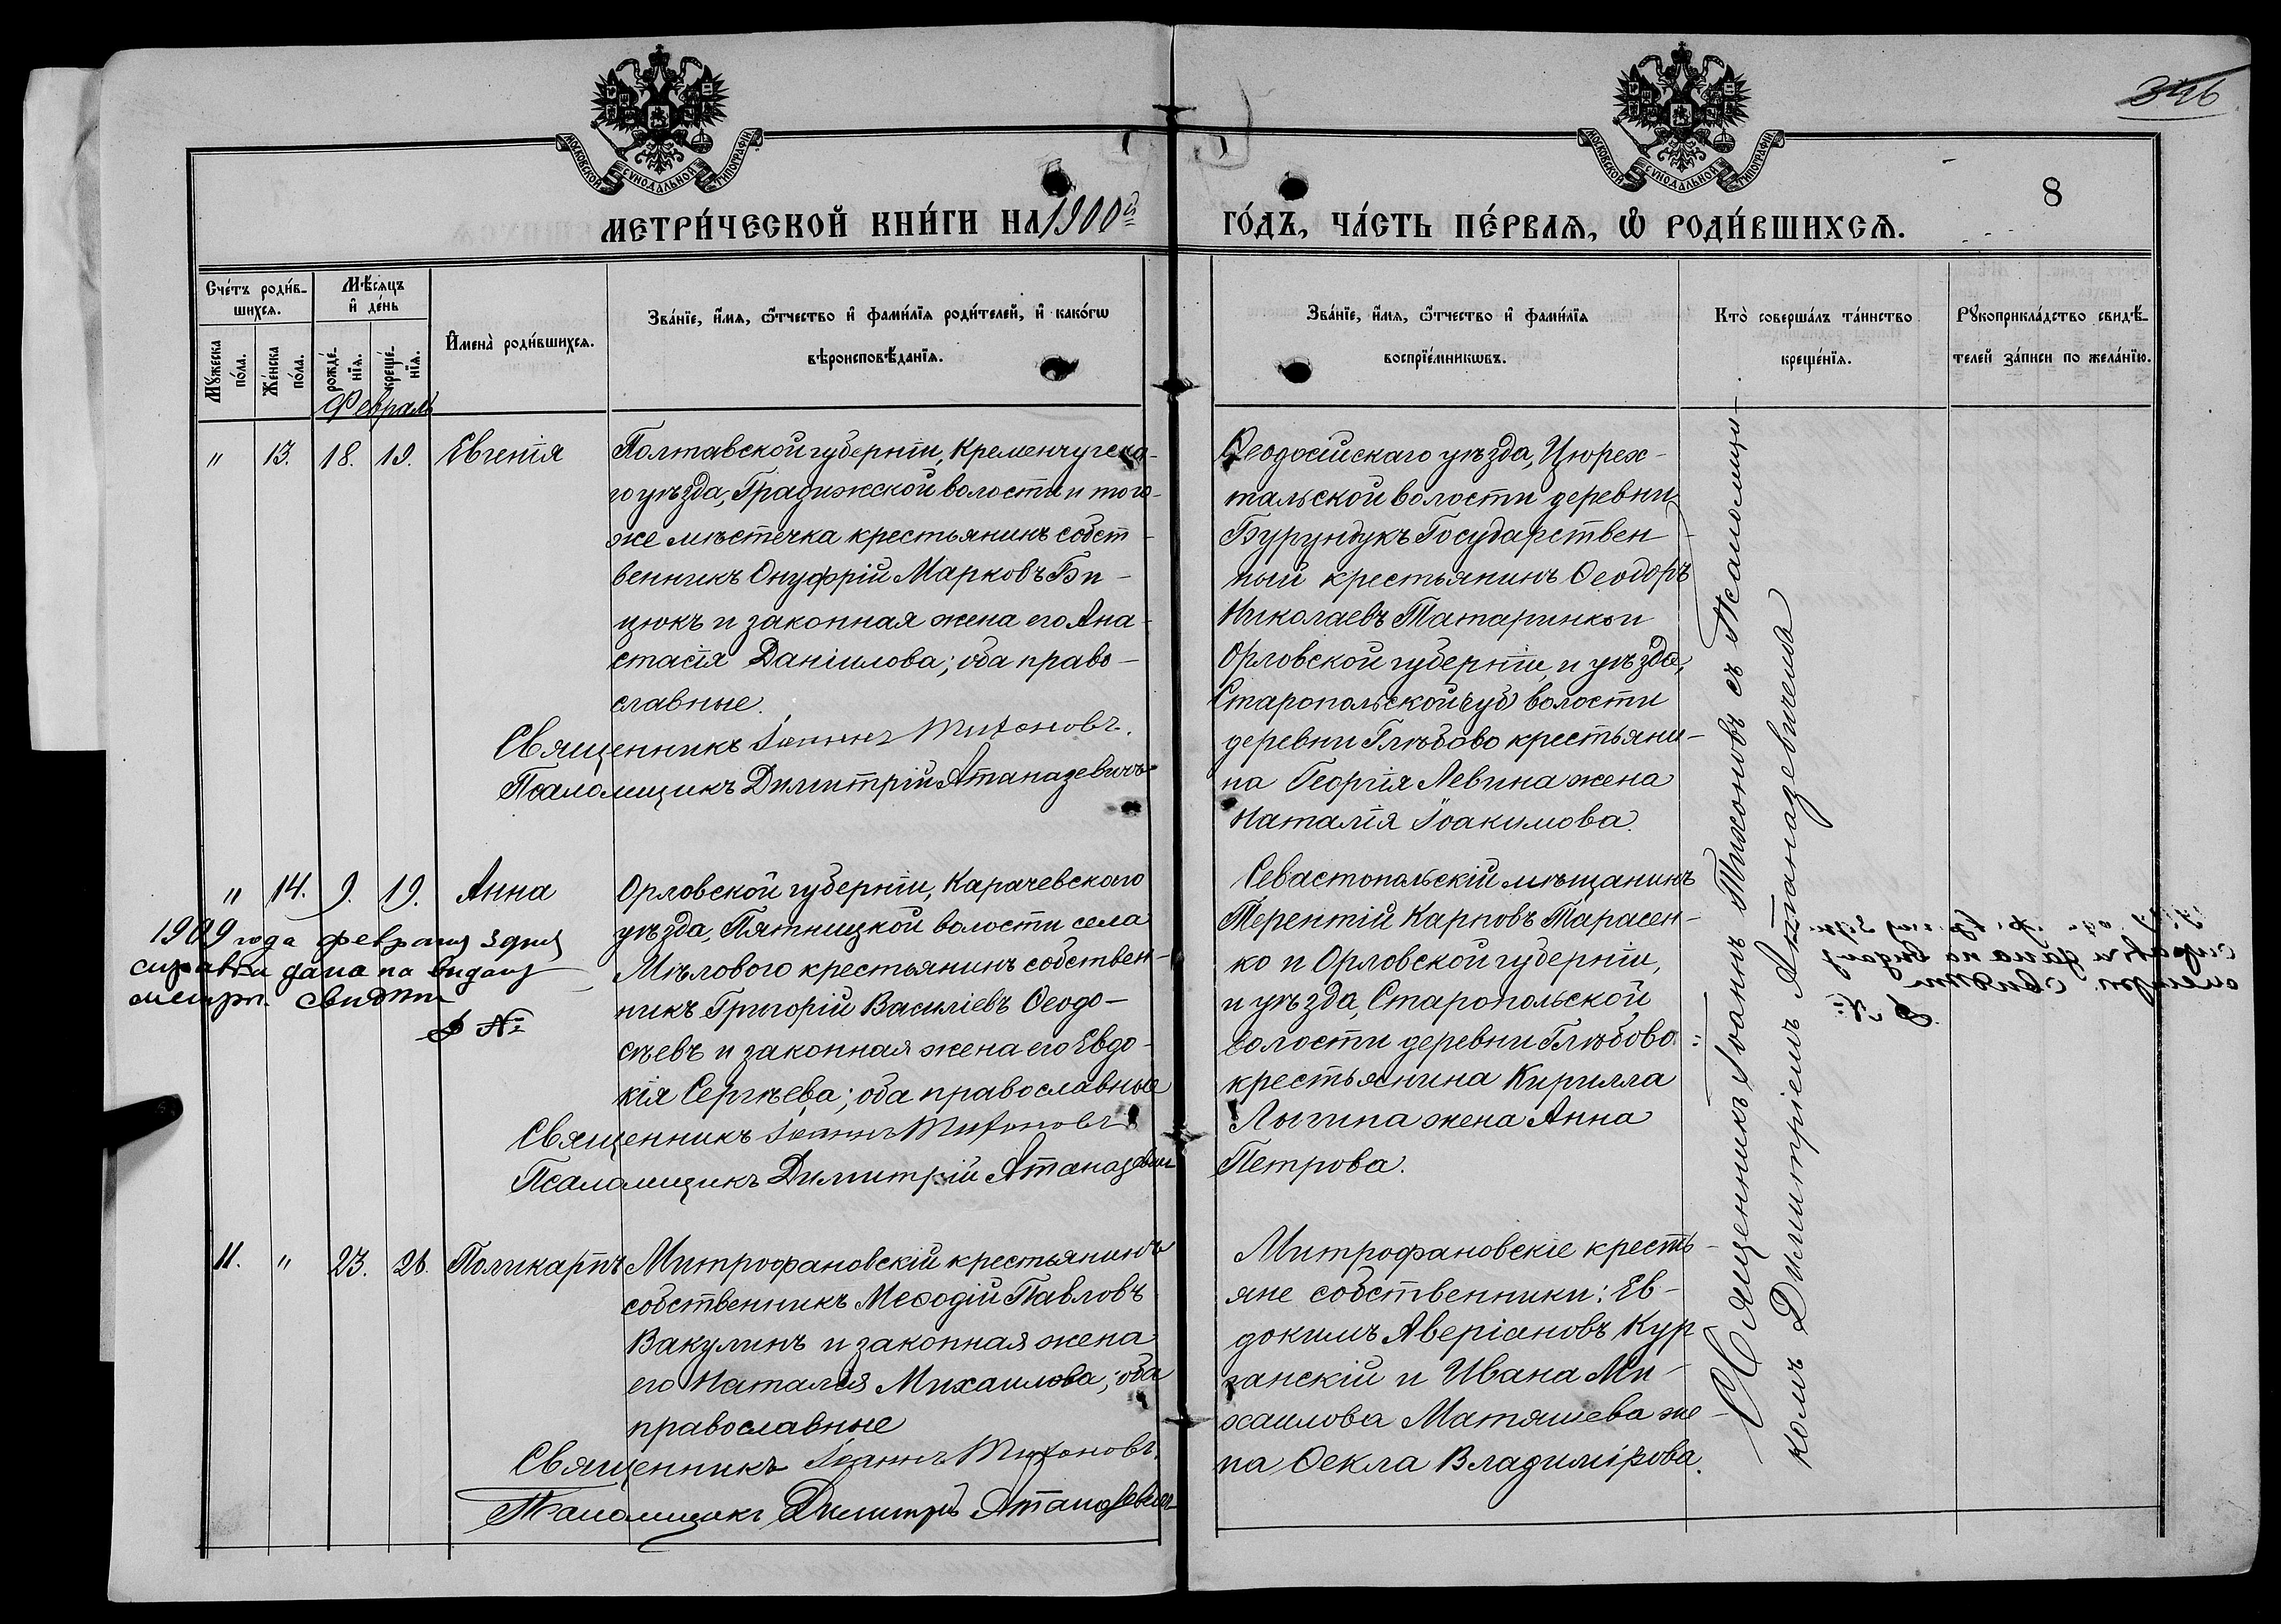 346
8
МОСКОВСКОЙ СѴНОДАЛЬНОЙ ТИПОГРАФІИ
МОСКОВСКОЙ СѴНОДАЛЬНОЙ ТИПОГРАФІИ
МЕТРИ́ЧЕСКОЙ КНИ́ГИ НА 1900й
ГО́ДЪ, ЧА́СТЬ ПЕ́РВАѦ, Ѿ РОДИ́ВШИХСѦ.
Сче́тъ роди́в-
шихсѧ.
Мꙋ́жеска
по́ла.
Же́нска
по́ла.
Мѣ́сяцъ
и҆ де́нь
рожде́-
нїѧ.
креще́-
нїѧ.
И҆мена̀ роди́вшихсѧ.
Зва́нїе, и҆́мѧ, ѻ҆́тчество и҆ фами́лїѧ роди́телей, и҆ како́гѡ
вѣроисповѣ́данїѧ.
Зва́нїе, и҆́мѧ, ѻ҆́тчество и҆ фами́лїѧ
воспрїе́мникѡвъ.
Кто̀ соверша́лъ та́инство
креще́нїѧ.
Рꙋкоприкла́дство свидѣ́-
телей за́писи по жела́нїю.
Февраль
" 13. 18. 19. Евгенія
Полтавской губерніи, Кременчугска-
го уѣзда, Градижской волости и того-
же мѣстечка крестьянинъ собст-
венникъ Онуфрій Марковъ Би-
цюкъ и законная жена его Ана-
стасія Даніилова; оба право-
славные.
Священникъ Іоаннъ Тихоновъ.
Псаломщикъ Димитрій Атаназевичъ
Ѳеодосійскаго уѣзда, Цюрех-
тальской волости деревни
Бурундукъ Государствен-
ный крестьянинъ Ѳеодоръ
Николаевъ Татаринъ и
Орловской губерніи, и уѣзда,
Старопольской волости
деревни Глѣбово крестьяни-
на Георгія Левина жена
Наталія Іоакимова.
" 14. 9. 19. Анна
Орловской губерніи, Карачевскаго
уѣзда, Пятницкой волости села
Мѣлового крестьянинъ собствен-
никъ Григорій Василіевъ Ѳеодо-
сѣевъ и законная жена его Евдо-
кія Сергѣева; оба православные
Священникъ Іоаннъ Тихоновъ
Псаломщикъ Димитрій Атаназевич
1909 года февраля 3 дня
справка дана на выдачу
метрич. свидѣт
№
Севастопольскій мѣщанинъ
Терентій Карповъ Тарасен-
ко и Орловской губерніи,
и уѣзда, Старопольской
волости деревни Глѣбово
крестьянина Кирилла
Лыгина жена Анна
Петрова.
11. " 23. 26. Поликарпъ
Митрофановскій крестьянинъ
собственникъ Меѳодій Павловъ
Вакулинъ и законная жена
его Наталія Михаилова; оба
православные
Священникъ Іоаннъ Тихоновъ.
Псаломщикъ Димитрій Атаназевич
Митрофановскіе кресть-
яне собственники: Ев-
докимъ Аверіановъ Кур-
ганскій и Ивана Ми-
хаилова Матяшева же-
на Ѳекла Владимірова.
Священникъ Іоаннъ Тихоновъ съ Псаломщи-
комъ Димитріемъ Атаназевичемъ